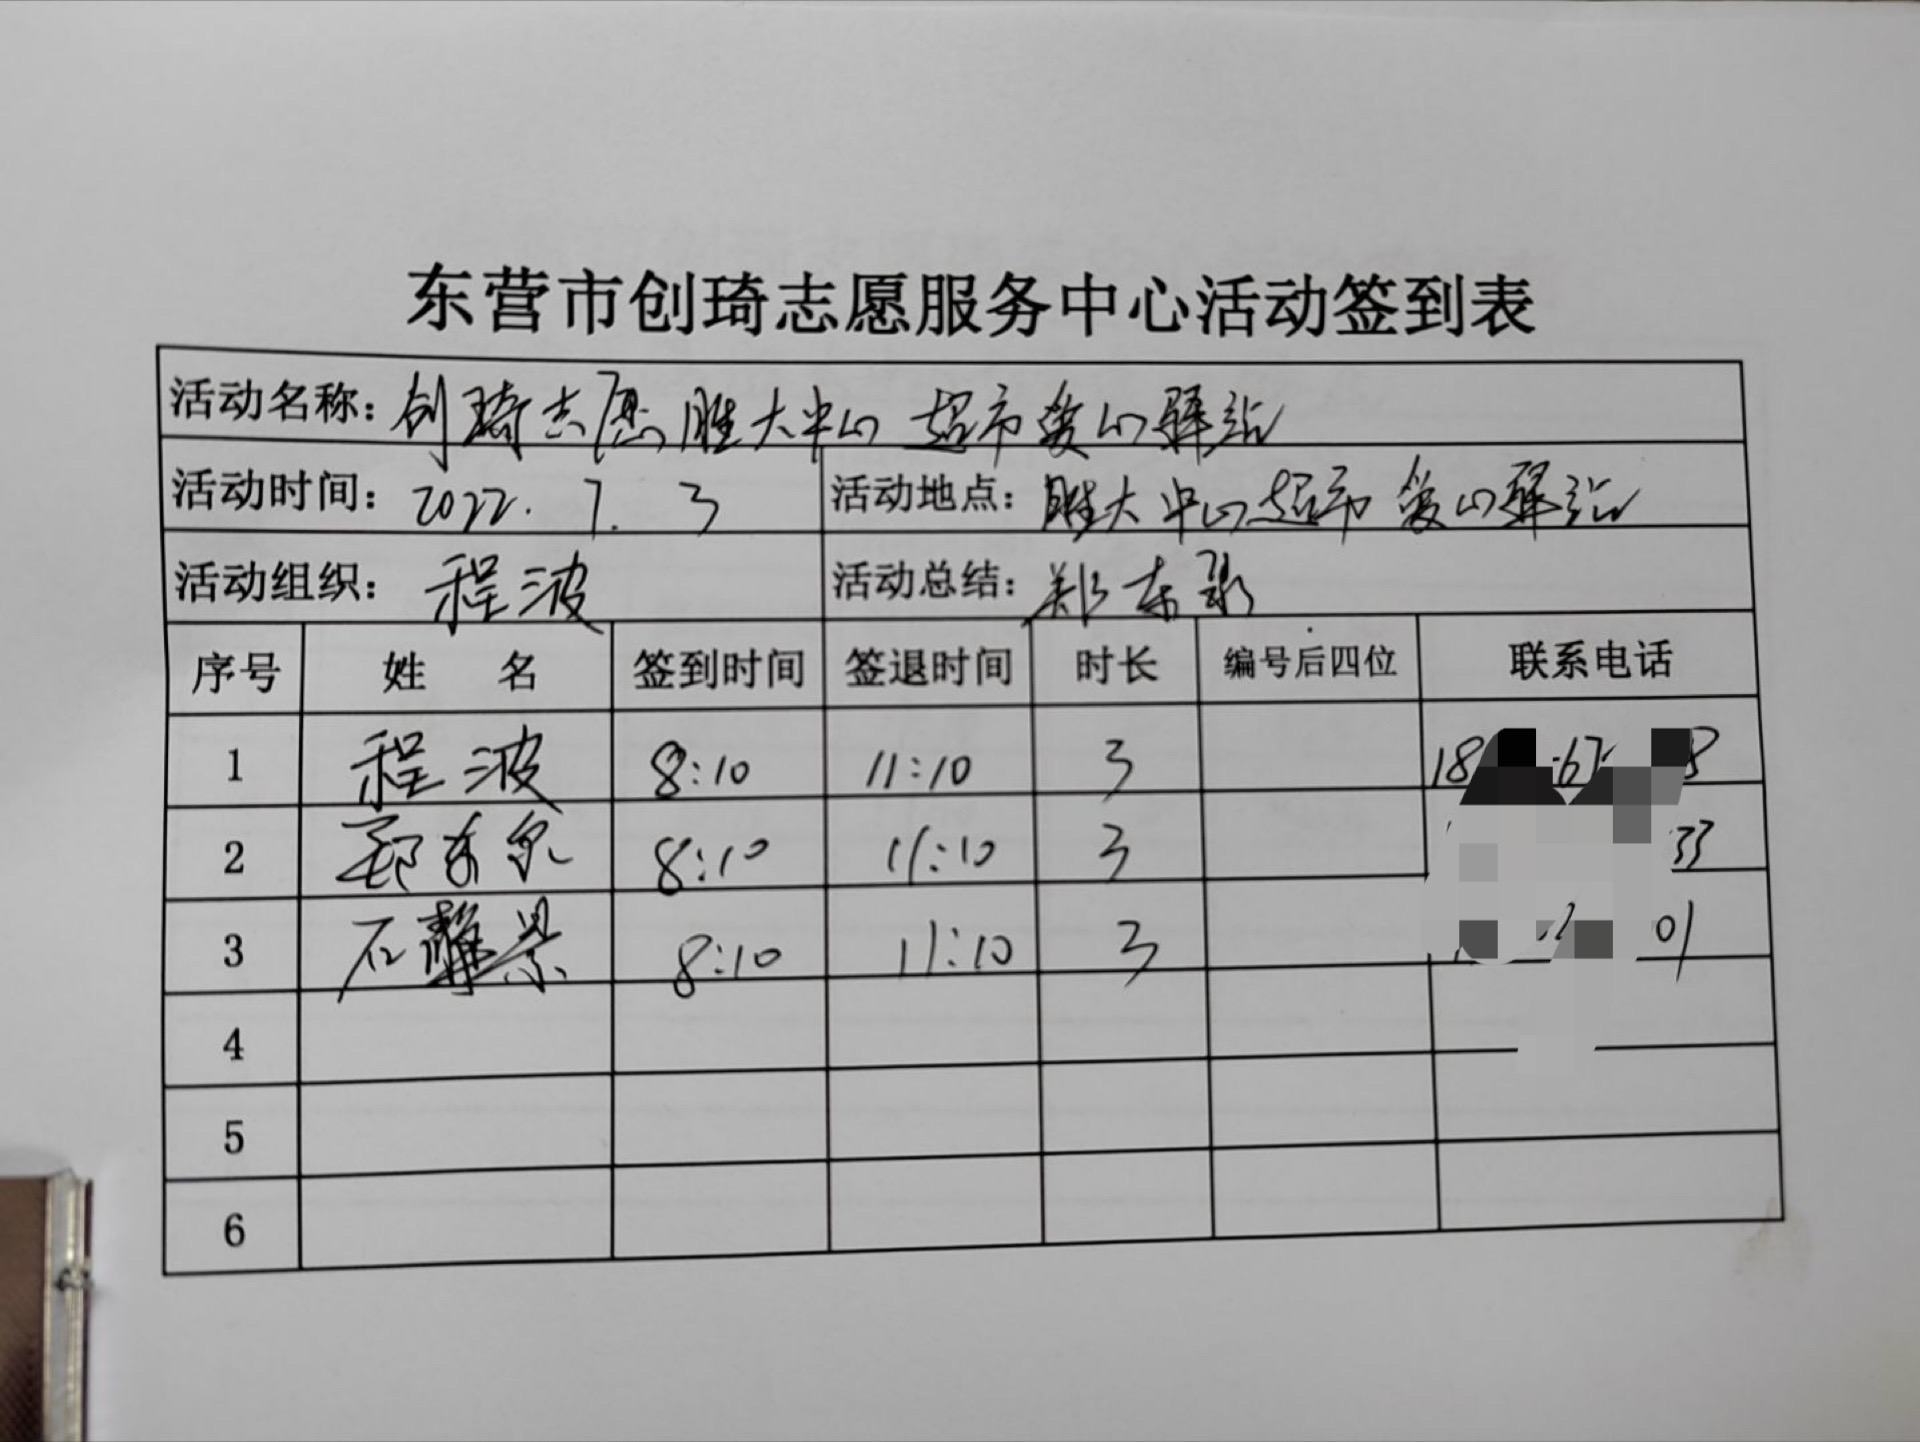 东营市创琦志愿服务中心活动签到表
活动名称：创琦志愿胜大中心超市爱心驿站
活动时间：2022.7.3 活动地点：胜大中心超市爱心驿站
活动组织：程波 活动总结：郑东
序号 姓名 签到时间 签退时间 时长 编号后四位 联系电话
1 程波 8:10 11:10 3
2 郑东 8:10 11:10 3
3 石静景 8:10 11:10 3
4
5
6